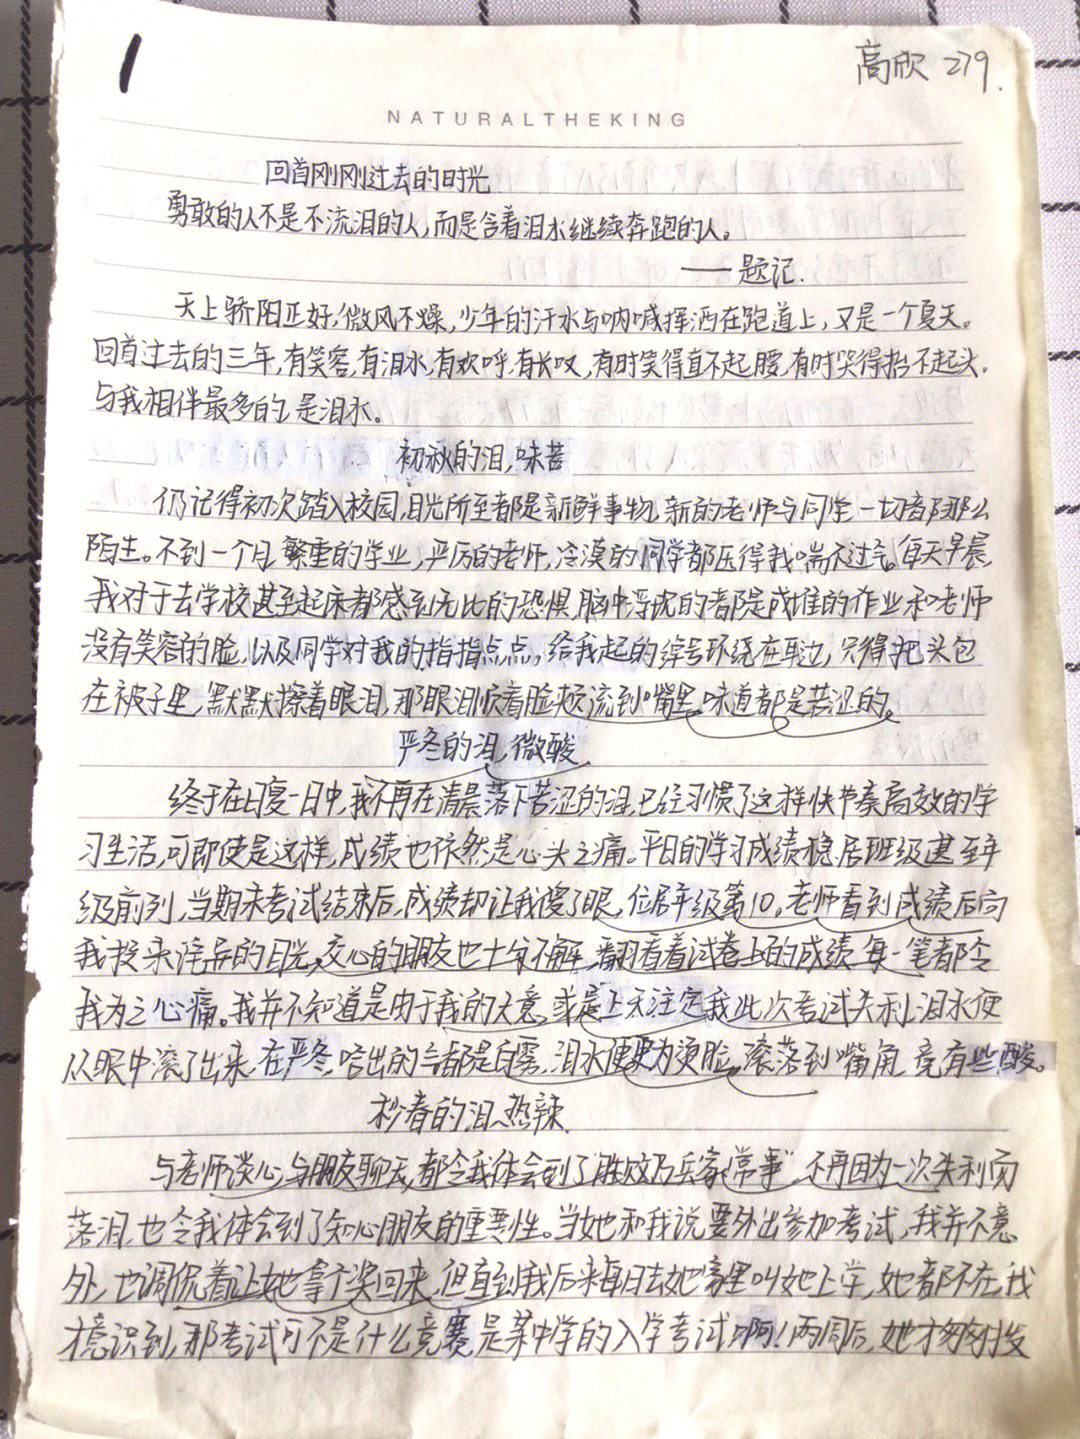 1
高欣 279.
NATURALTHEKING
回首刚刚过去的时光
勇敢的人不是不流泪的人,而是含着泪水继续奔跑的人。
——题记.
天上骄阳正好,微风不燥,少年的汗水与呐喊挥洒在跑道上,又是一个夏天。
回首过去的三年,有笑容,有泪水,有欢呼,有长叹,有时笑得直不起腰,有时哭得抬不起头。
与我相伴最多的是泪水。
初秋的泪,味苦
仍记得初次踏入校园,目光所至都是新鲜事物,新的老师与同学一切都那么
陌生。不到一个月,繁重的学业,严厉的老师,冷漠的同学都压得我喘不过气。每天早晨,
我对于去学校甚至起床都感到无比的恐惧,脑中浮现的都是成堆的作业和老师
没有笑容的脸,以及同学对我的指指点点,给我起的绰号环绕在耳边,只得把头包
在被子里,默默擦着眼泪,那眼泪顺着脸颊流到嘴里,味道都是苦涩的。
严冬的泪,微酸
终于在日复一日中,我不再在清晨落下苦涩的泪,已经习惯了这样快节奏高效的学
习生活,可即使是这样,成绩也依然是心头之痛。平日的学习成绩稳居班级甚至年
级前列,当期末考试结束后,成绩却让我傻了眼,位居年级第10,老师看到成绩后向
我投来诧异的目光,交心的朋友也十分不解,翻看着试卷上的成绩,每一笔都令
我为之心痛。我并不知道是由于我的大意,或是上天注定我此次考试失利,泪水便
从眼中滚了出来,在严冬,哈出的气都是白雾,泪水便更为烫脸,滚落到嘴角,竟有些酸。
杪春的泪,热辣
与老师谈心,与朋友聊天,都令我体会到了"胜败乃兵家常事",不再因为一次失利而
落泪,也令我体会到了知心朋友的重要性。当她和我说要外出参加考试,我并不意
外,也调侃着让她拿个奖回来,但直到我后来每日去她家里叫她上学,她都不在,我
才意识到,那考试可不是什么竞赛,是某中学的入学考试啊!两周后,她才匆匆发